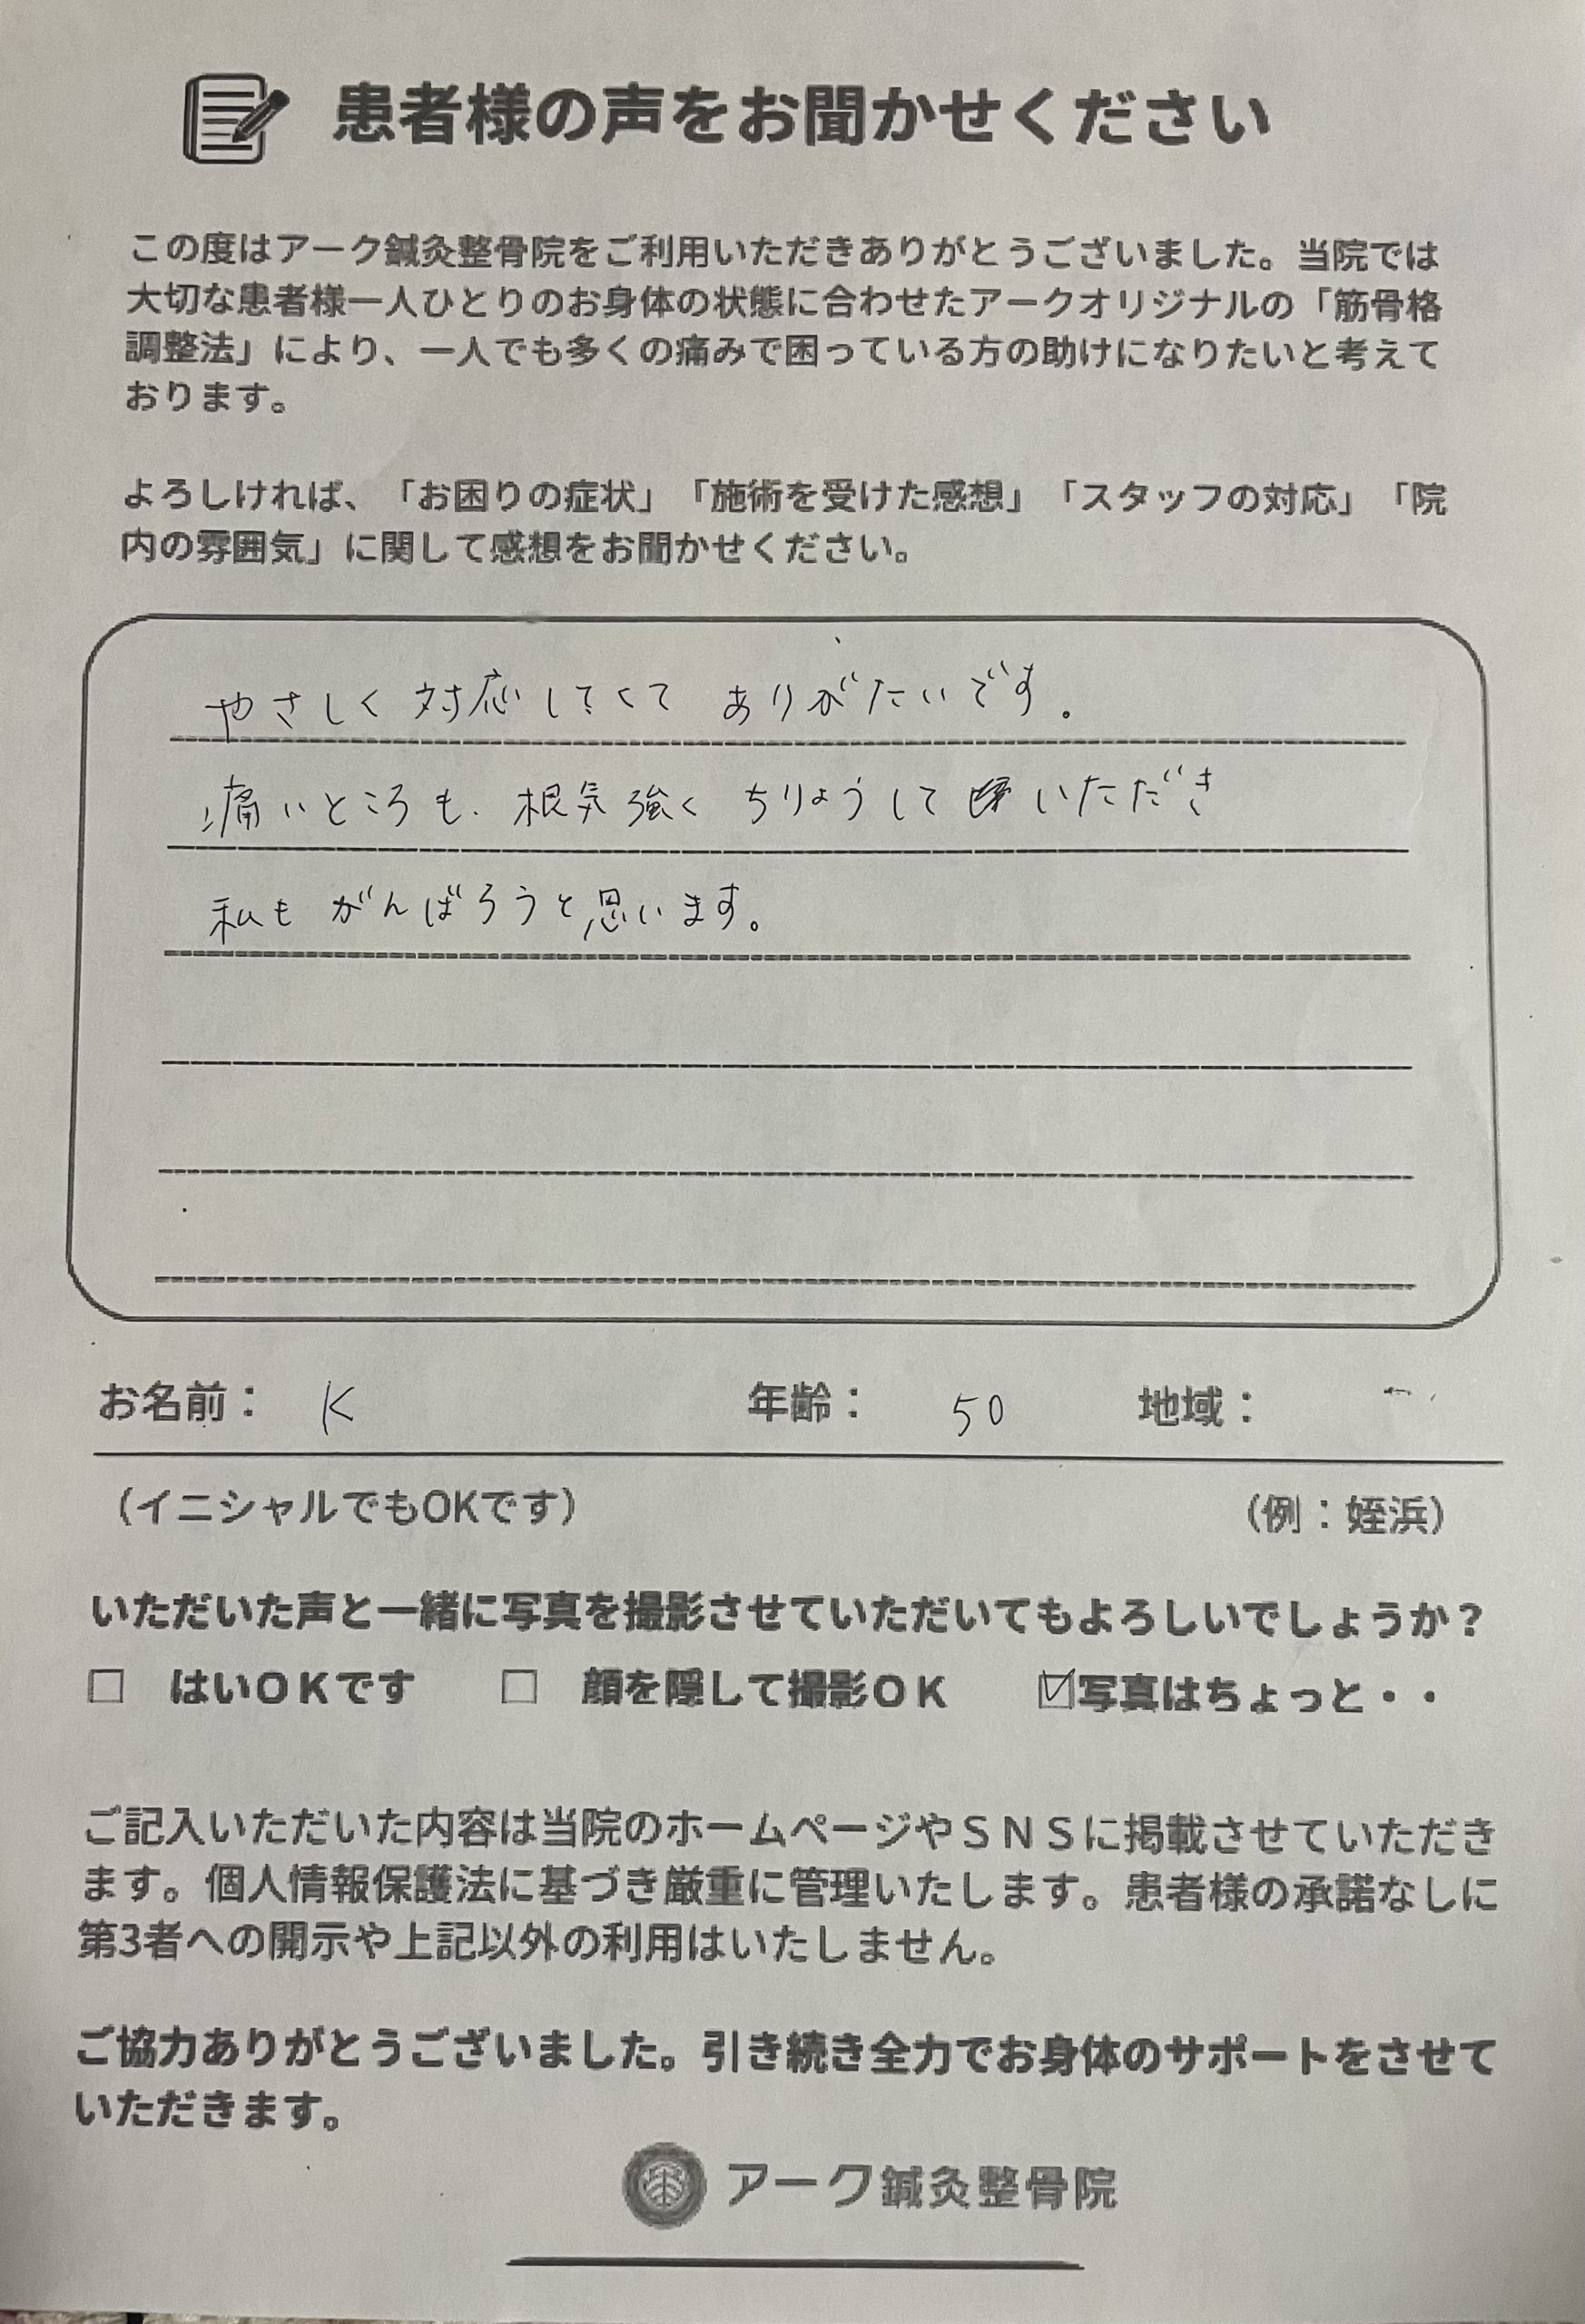 患者様の声をお聞かせください
この度はアーク鍼灸整骨院をご利用いただきありがとうございました。当院では
大切な患者様一人ひとりのお身体の状態に合わせたアークオリジナルの「筋骨格
調整法」により、一人でも多くの痛みで困っている方の助けになりたいと考えて
おります。
よろしければ、「お困りの症状」「施術を受けた感想」「スタッフの対応」「院
内の雰囲気」に関して感想をお聞かせください。
やさしく 対応してくて ありがたいです。
痛いところも、根気強く ちりょうして いただき
私も がんばろうと思います。
お名前： K 年齢： 50 地域：
（イニシャルでもOKです） （例：姪浜）
いただいた声と一緒に写真を撮影させていただいてもよろしいでしょうか？
☐ はいＯＫです ☐ 顔を隠して撮影ＯＫ ☑写真はちょっと・・
ご記入いただいた内容は当院のホームページやＳＮＳに掲載させていただき
ます。個人情報保護法に基づき厳重に管理いたします。患者様の承諾なしに
第3者への開示や上記以外の利用はいたしません。
ご協力ありがとうございました。引き続き全力でお身体のサポートをさせて
いただきます。
アーク鍼灸整骨院